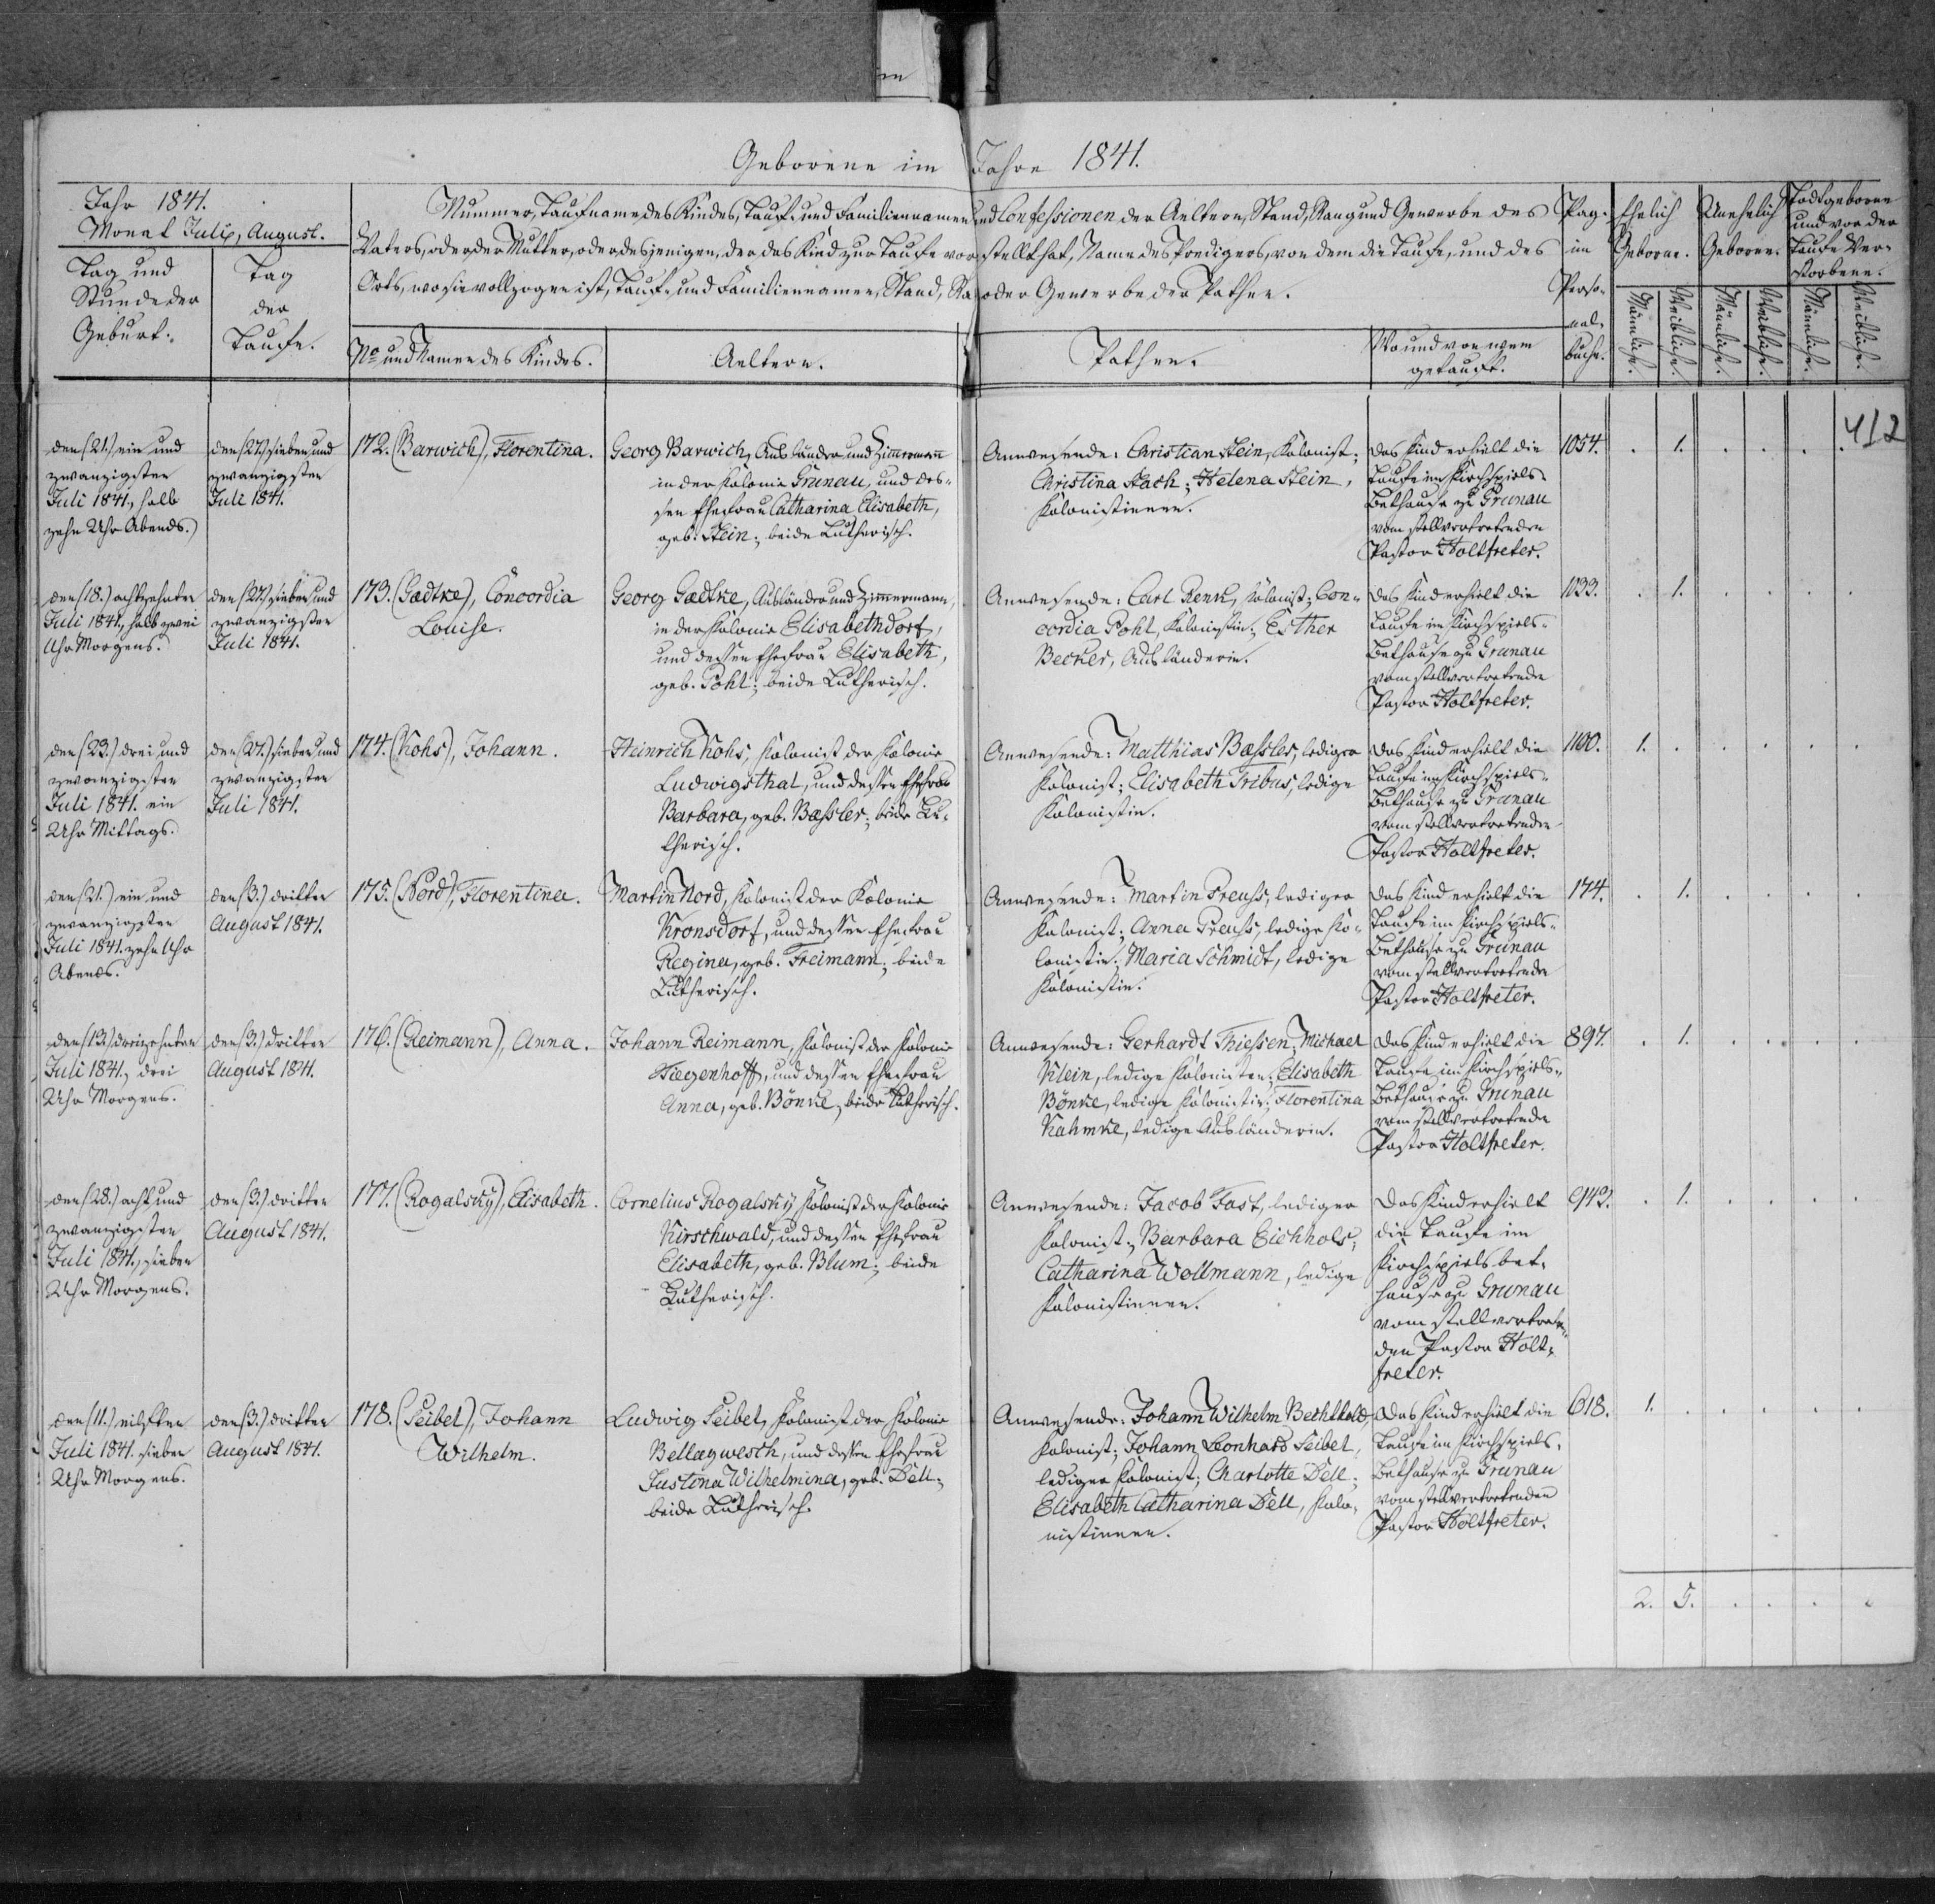 Geborene im Jahre 1841.
Jahr 1841.
Monat Julij, August.
Tag und
Stunde der
Geburt.
Tag
der
Taufe.
Nummer, Taufname des Kindes, Tauf- und Familiennamen und Confessionen der Aeltern, Stand, Rang und Gewerbe des
Vaters, oder der Mutter, oder desjenigen, der das Kind zur Taufe vorstellt hat, Name des Predigers, von dem die Taufe, und des
Orts, wo sie vollzogen ist, Tauf- und Familiennamen, Stand, Ra oder Gewerbe der Pathen.
No und Namen des Kindes.
Aeltern.
Pathen.
Wo und von wem
getauft.
Pag.
im
Perso-
nal-
buche.
Ehelich
Geborne.
Unehelich
Geborene.
Todtgeborne
und vor der
Taufe Ver-
storbene.
Männliche.
Weibliche.
Männliche.
Weibliche.
Männliche.
Weibliche.
412
den (21.) ein und
zwanzigsten
Juli 1841, halb
zehn Uhr Abends.)
den (27.) sieben und
zwanzigsten
Juli 1841.
172. (Barwich), Florentina.
Georg Barwich, Ausländer und Zimmermann
in der Kolonie Grunau, und des-
sen Ehefrau Catharina Elisabeth,
geb. Stein; beide Lutherisch.
Anwesende: Christian Stein, Kolonist;
Christina Stach; Helena Stein,
Kolonistinnen.
Das Kind erhielt die
Taufe im Kirchspiels-
Bethause zu Grunau
vom stellvertretenden
Pastor Holtfreter.
1054. . 1. . . . .
den (18.) achtzehnten
Juli 1841, halb zwei
Uhr Morgens.
den (27.) sieben und
zwanzigsten
Juli 1841.
173. (Gædtke), Concordia
Louise.
Georg Gædtke, Ausländer und Zimmermann,
in der Kolonie Elisabethdorf,
und dessen Ehefrau Elisabeth,
geb. Pohl; beide Lutherisch.
Anwesende: Carl Renk, Kolonist; Con-
cordia Pohl, Kolonistin; Esther
Becker, Ausländerin.
Das Kind erhielt die
Taufe im Kirchspiels-
Bethause zu Grunau
vom stellvertretenden
Pastor Holtfreter.
1033. . 1. . . . .
den (23.) drei und
zwanzigsten
Juli 1841. ein
Uhr Mittags.
den (27.) sieben und
zwanzigsten
Juli 1841.
174. (Kohs), Johann.
Heinrich Kohs, Kolonist der Kolonie
Ludwigsthal, und dessen Ehefrau
Barbara, geb. Bæssler; beide Lu-
therisch.
Anwesende: Matthias Bæssler, lediger
Kolonist; Elisabeth Tribus, ledige
Kolonistin.
Das Kind erhielt die
Taufe im Kirchspiels-
Bethause zu Grunau
vom stellvertretenden
Pastor Holtfreter.
1100. 1. . . . . .
den (21.) ein und
zwanzigsten
Juli 1841. zehn Uhr
Abends.
den (3.) dritten
August 1841.
175. (Nord), Florentina.
Martin Nord, Kolonist der Kolonie
Kronsdorf, und dessen Ehefrau
Regina, geb. Freimann; beide
Lutherisch.
Anwesende: Martin Preuss, lediger
Kolonist; Anna Preuss, ledige Ko-
lonistin; Maria Schmidt, ledige
Kolonistin.
Das Kind erhielt die
Taufe im Kirchspiels-
Bethause zu Grunau
vom stellvertretenden
Pastor Holtfreter.
174. . 1. . . . .
den (13.) dreizehnten
Juli 1841, drei
Uhr Morgens.
den (3.) dritten
August 1841.
176. (Reimann), Anna.
Johann Reimann, Kolonist der Kolonie
Tiegenhoff, und dessen Ehefrau
Anna, geb. Bönke; beide Lutherisch.
Anwesende: Gerhardt Thiessen; Michael
Klein, ledige Kolonisten; Elisabeth
Bönke, ledige Kolonistin; Florentina
Kahmke, ledige Ausländerin.
Das Kind erhielt die
Taufe im Kirchspiels-
Bethause zu Grunau
vom stellvertretenden
Pastor Holtfreter.
897. . 1. . . . .
den (28.) acht und
zwanzigsten
Juli 1841., sieben
Uhr Morgens.
den (3.) dritten
August 1841.
177. (Rogalsky), Elisabeth.
Cornelius Rogalsky, Kolonist der Kolonie
Kirschwald, und dessen Ehefrau
Elisabeth, geb. Blum; beide
Lutherisch.
Anwesende: Jacob Fast, lediger
Kolonist; Barbara Eichhols;
Catharina Wollmann, ledige
Kolonistinnen.
Das Kind erhielt
die Taufe im
Kirchspielsbet-
hause zu Grunau
vom stellvertreten-
den Pastor Holt-
freter.
943. . 1. . . . .
den (11.) eilften
Juli 1841. sieben
Uhr Morgens.
den (3.) dritten
August 1841.
178. (Seibel), Johann
Wilhelm.
Ludwig Seibel, Kolonist der Kolonie
Bellagwesch, und dessen Ehefrau
Justina Wilhelmina, geb. Dell;
beide Lutherisch.
Anwesende: Johann Wilhelm Bechthold,
Kolonist; Johann Leonhard Seibel,
lediger Kolonist; Charlotte Dell;
Elisabeth Catharina Dell, Kolo-
nistinnen.
Das Kind erhielt die
Taufe im Kirchspiels-
Bethause zu Grunau
vom stellvertretenden
Pastor Holtfreter.
618. 1. . . . . .
2. 5. . . . .